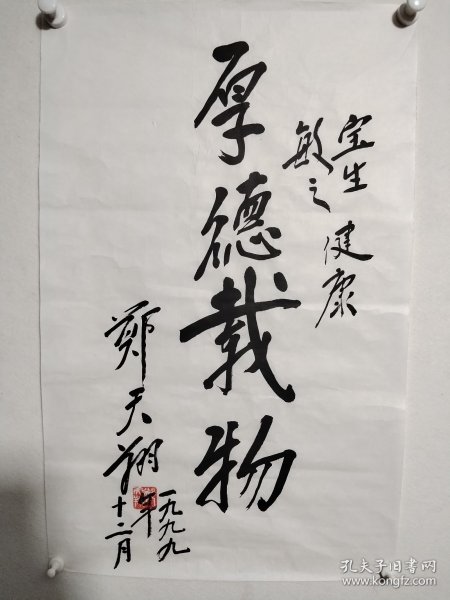 宝生
敏之
健康
厚德载物
郑天翔
一九九九年
十二月
孔夫子旧书网
www.kongfz.com